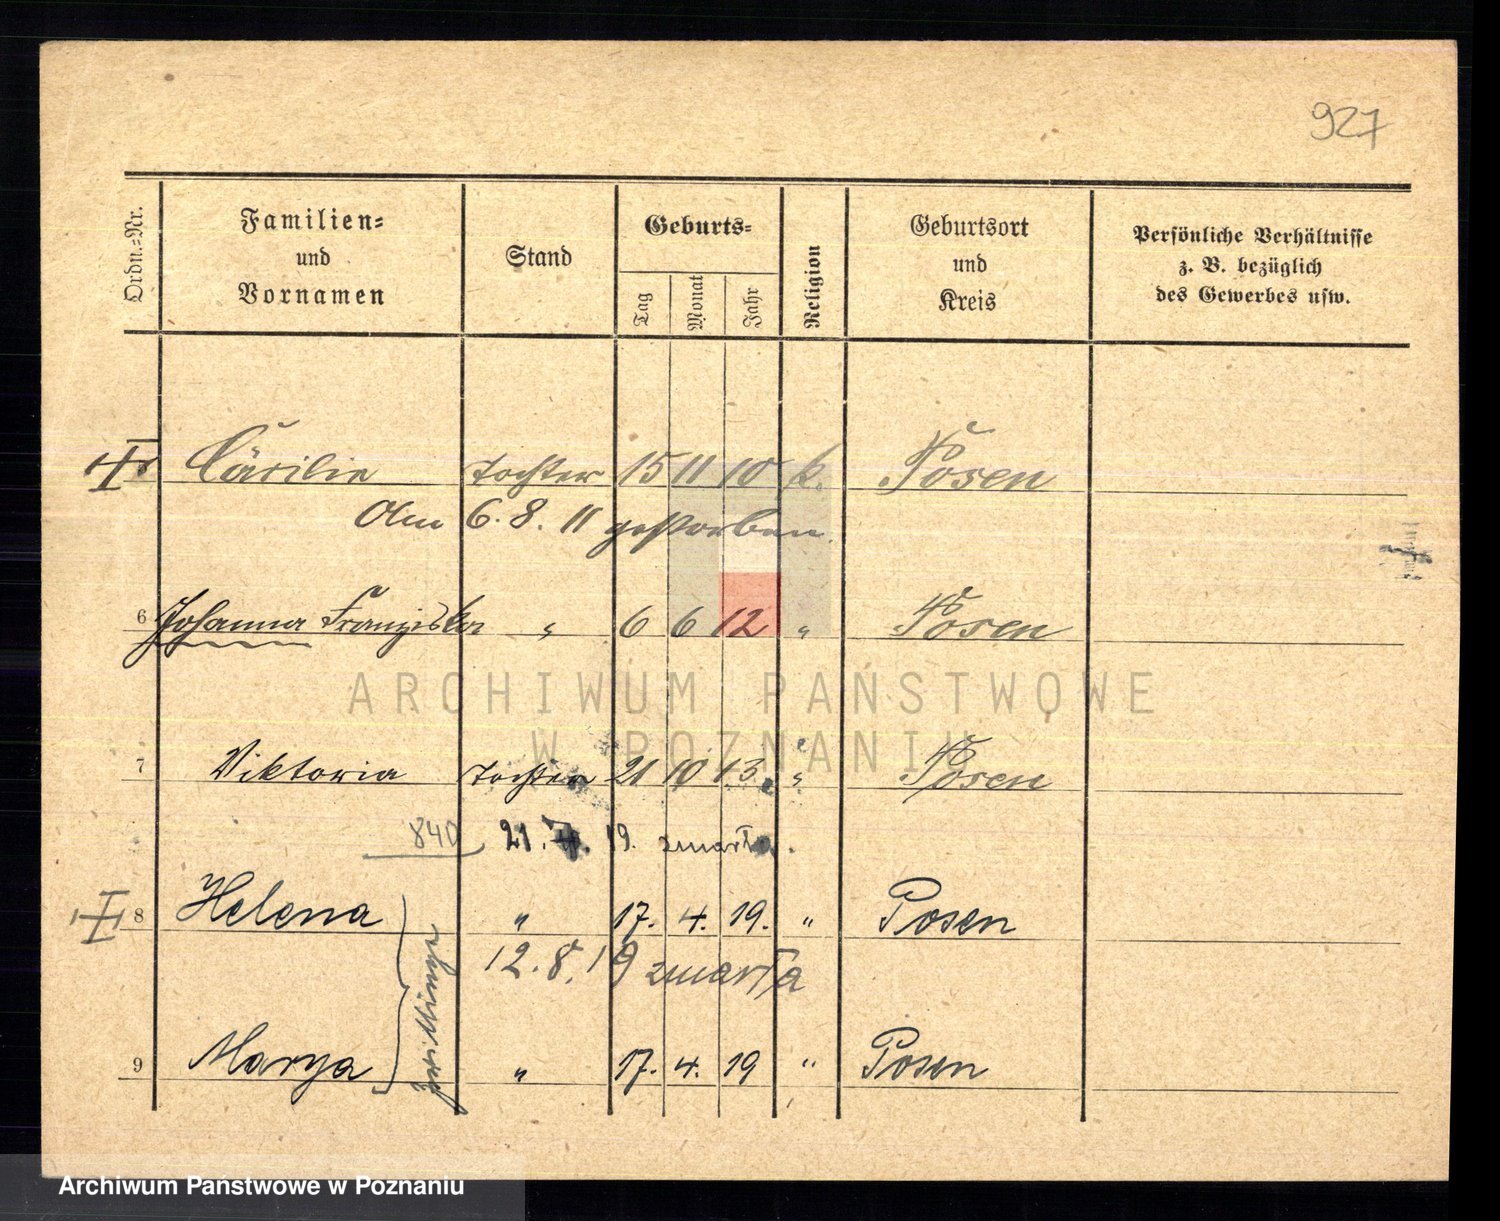 927
Ordn.=Nr.
Familien=
und
Vornamen
Stand
Geburts=
Tag
Monat
Jahr
Religion
Geburtsort
und
Kreis
Persönliche Verhältnisse
z. B. bezüglich
des Gewerbes usw.
Cäcilie Tochter 15 11 10 k. Posen
Am 6. 8. 11 gestorben.
6 Johanna Franziska " 6 6 12 " Posen
ARCHIWUM PAŃSTWOWE
W POZNANIU
7 Viktoria Tochter 21 10 13 " Posen
840 21. 19. zmarła.
8 Helena " 17. 4. 19. " Posen
12. 8. 19 zmarła
9 Marya " 17. 4. 19 " Posen
Zwillinge
Archiwum Państwowe w Poznaniu